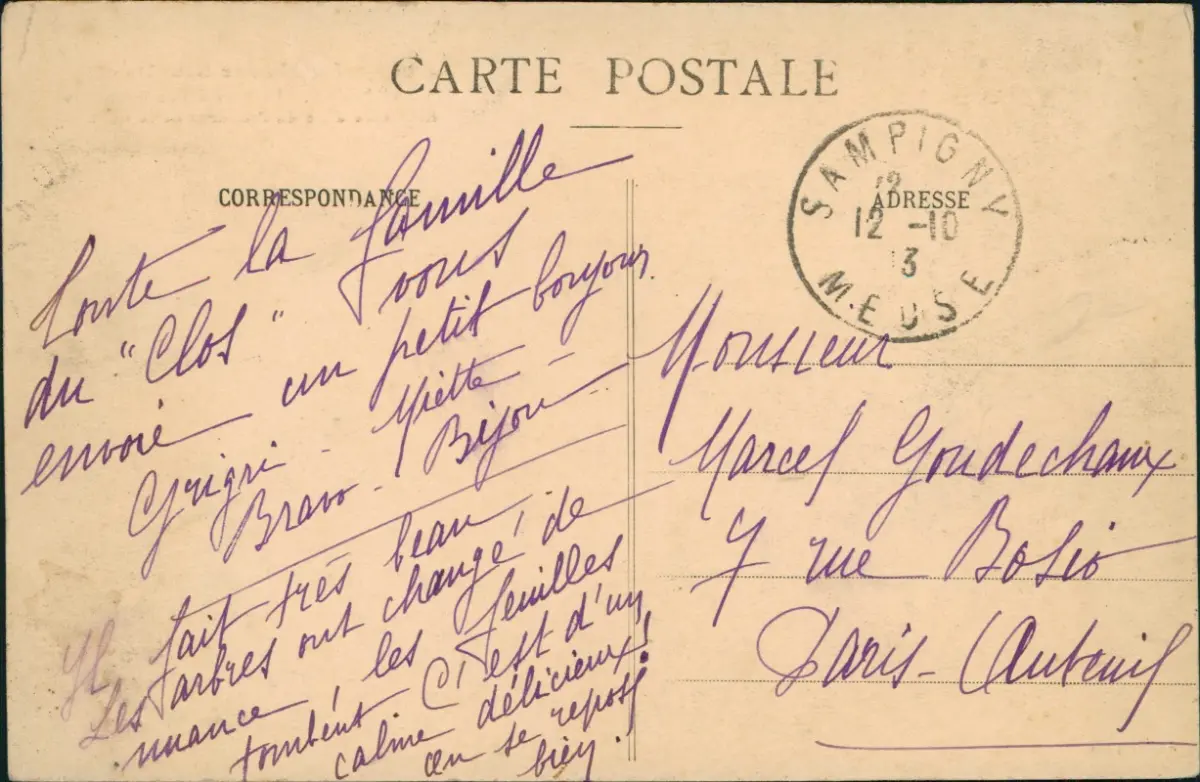 CARTE POSTALE
CORRESPONDANCE
Toute la famille
du "Clos" vous
envoie un petit bonjour.
Grigri - Miette -
Bravo - Bijou -
Il fait très beau,
Les arbres ont changé de
nuance, les feuilles
tombent C'est d'un
calme délicieux!
on se repose
bien.
ADRESSE
SAMPIGNY
12
12 -10
13
MEUSE
Monsieur
Marcel Goudechaux
7 rue Bosio
Paris - (Auteuil